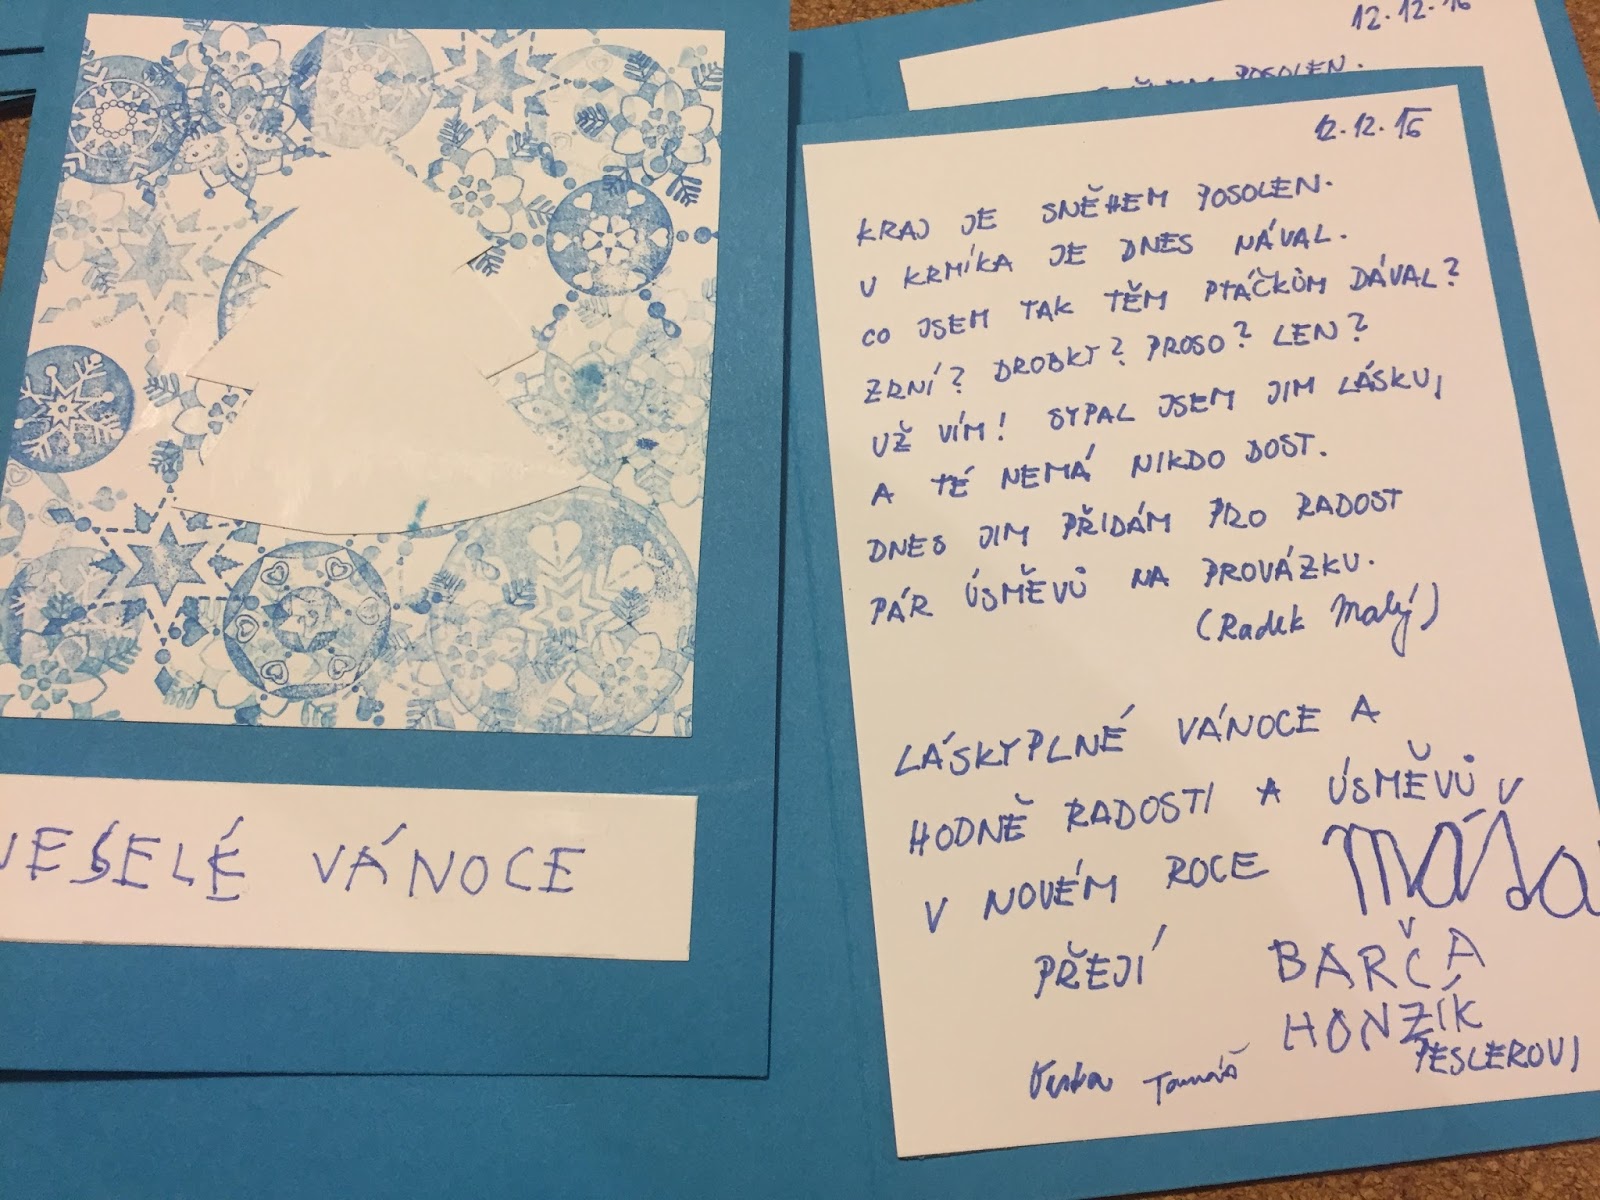 VESELÉ VÁNOCE
12.12.16
POSOLEN.
12.12.16
KRAJ JE SNĚHEM POSOLEN.
U KRMÍKA JE DNES NÁVAL.
CO JSEM TAK TĚM PTÁČKŮM DÁVAL?
ZRNÍ? DROBKY? PROSO? LEN?
UŽ VÍM! SYPAL JSEM JIM LÁSKU,
A TÉ NEMÁ NIKDO DOST.
DNES JIM PŘIDÁM PRO RADOST
PÁR ÚSMĚVŮ NA PROVÁZKU.
(Radek Malý)
LÁSKYPLNÉ VÁNOCE A
HODNĚ RADOSTÍ A ÚSMĚVŮ
V NOVÉM ROCE
PŘEJÍ
MÁŠA
BARČA
HONZÍK
Tomáš
PESLEROVI